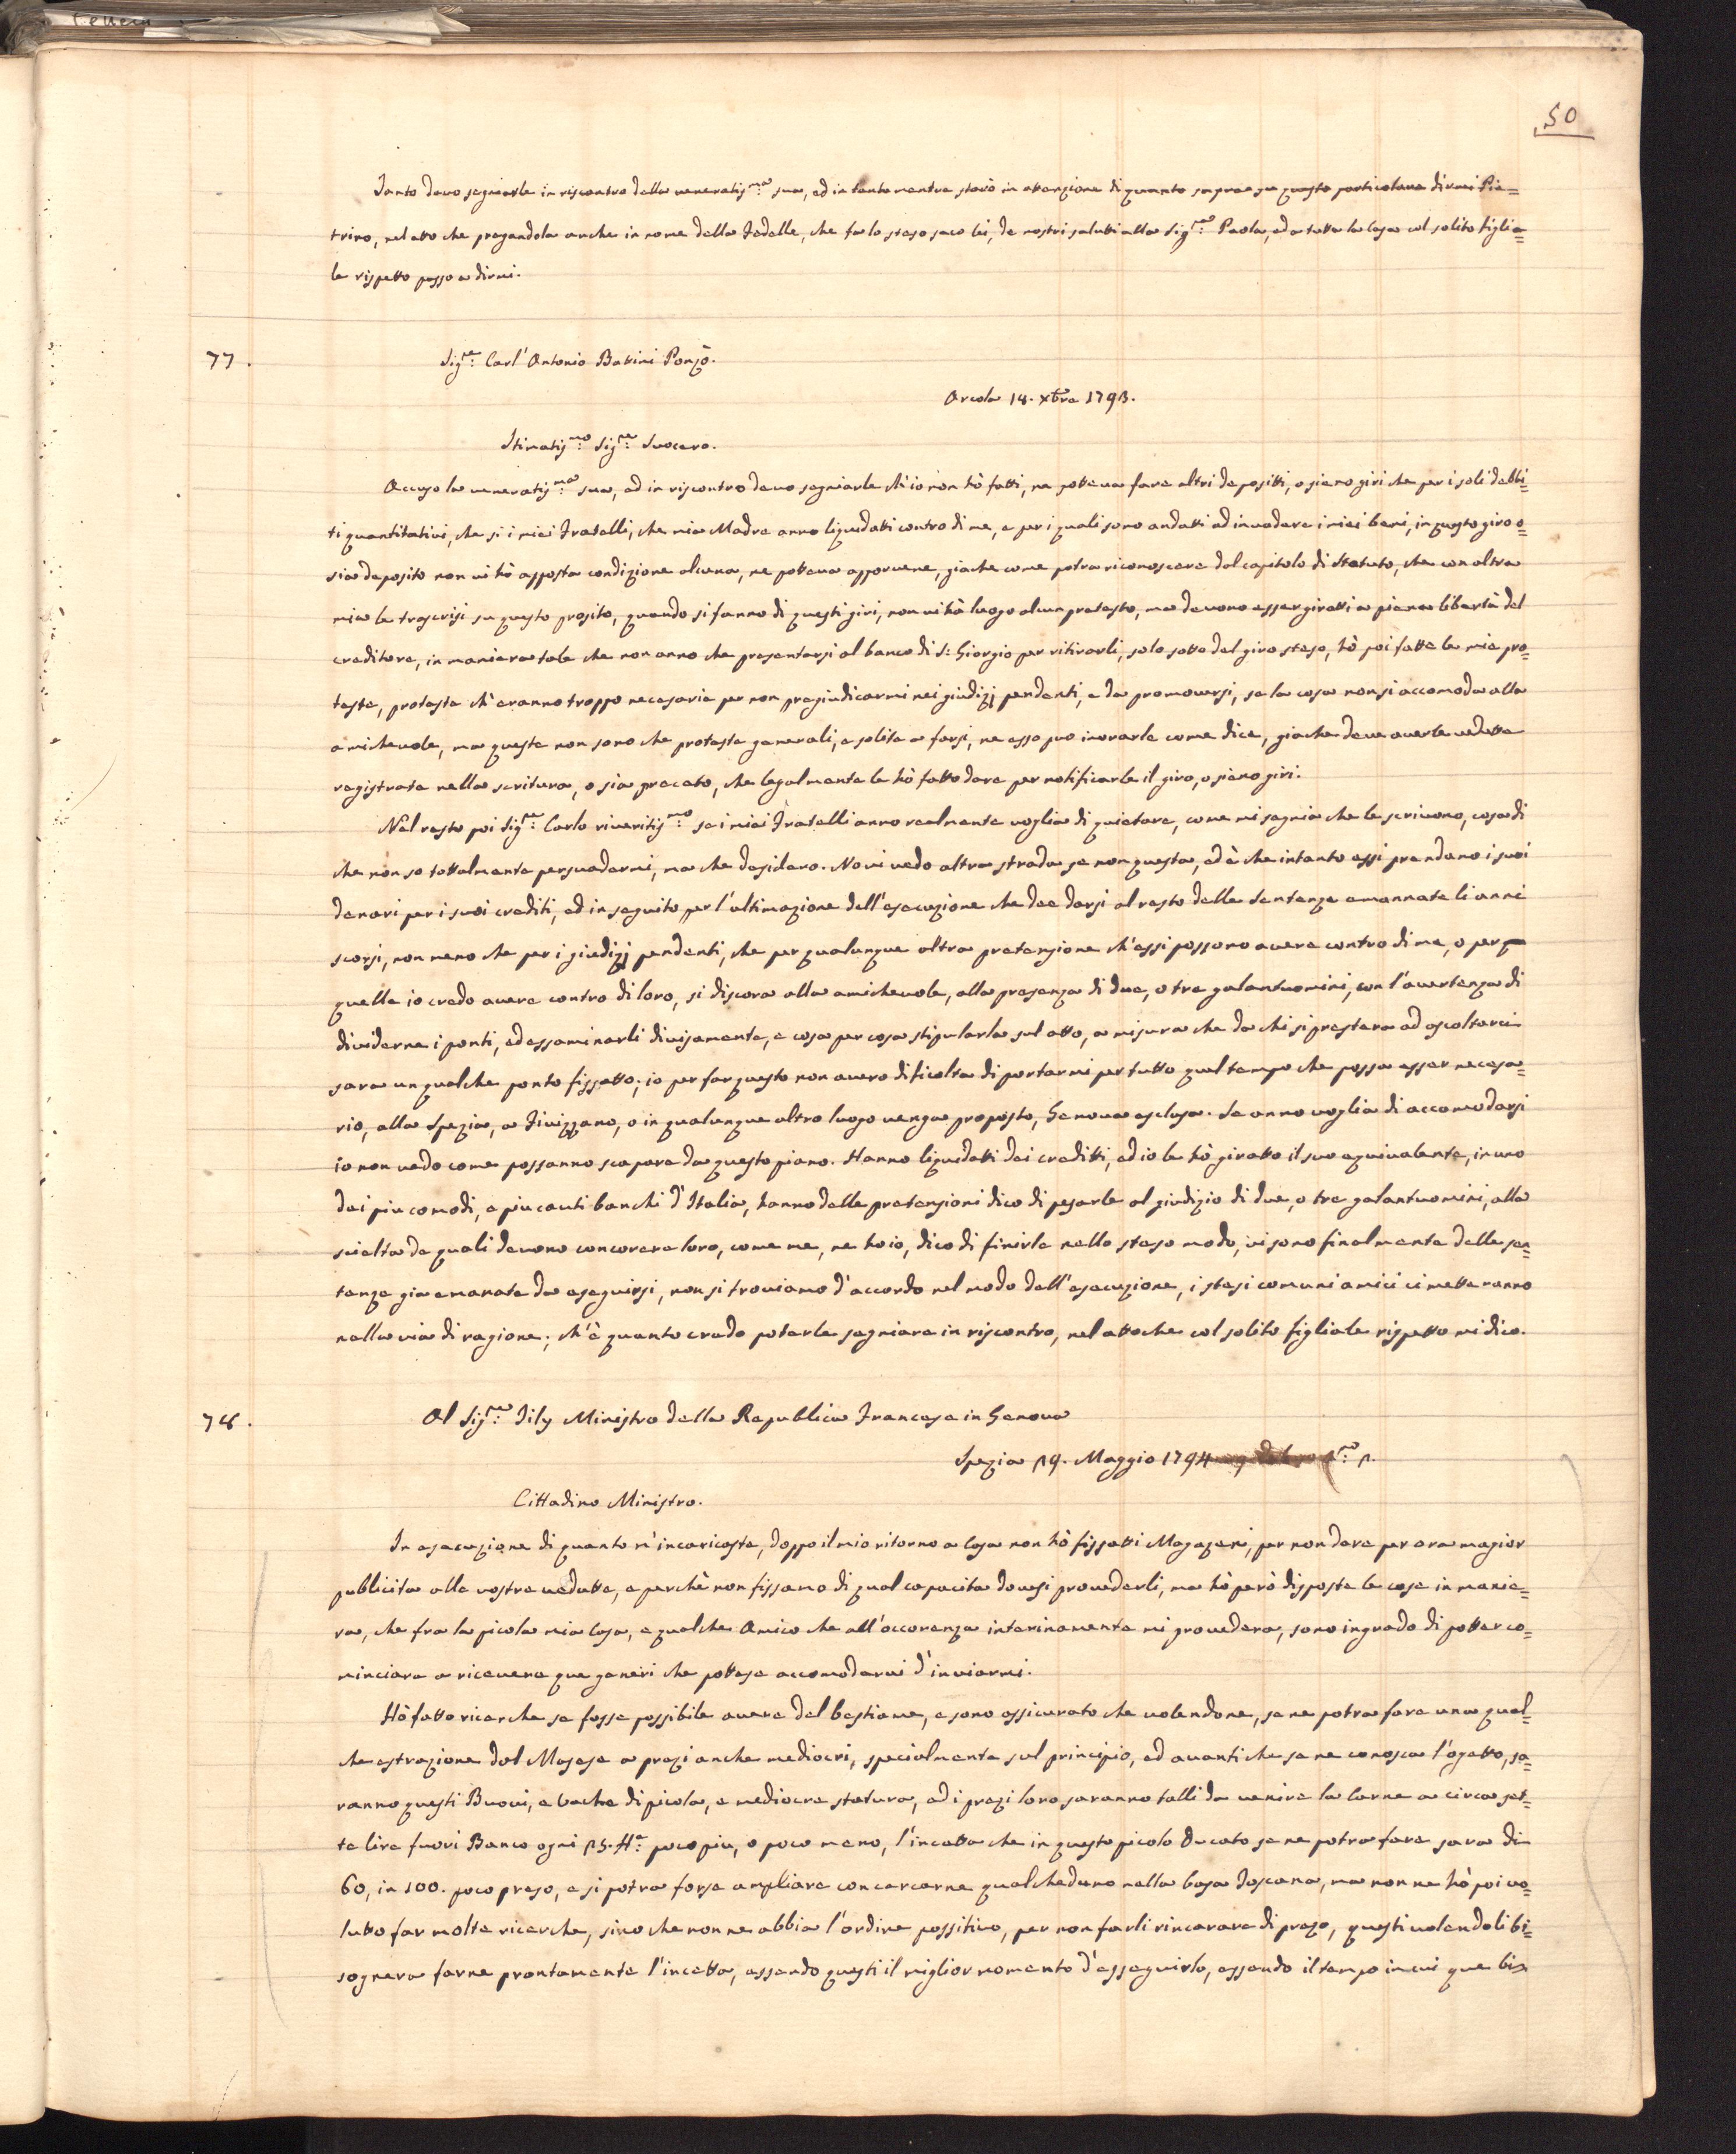 50
Tanto devo segniarle in riscontro della veneratis:ma sua, ed in tanto mentre starò in attenzione di quanto sapra su questo particolare dirmi Pie=
trino, nel atto che pregandola anche in nome della Fedelle, che fa lo steso saco lei, de nostri saluti alla Sig:ra Paola, ed a tutta la Casa col solito figlia=
le rispetto passo a dirmi.
77.
Sig:re Carl' Antonio Battini Ponzò.
Arcola 14. Xbre 1793.
Stimatis:mo Sig:re Suocero.
Accuso la veneratis:ma sua, ed in riscontro devo segniarle ch'io non hò fatti, ne potteva fare altri depositti, o sieno giri che per i soli debbi=
ti quantitativi, che si i miei Fratelli, che mia Madre anno liquidatti contro di me, e per i quali sono andatti ad invadere i miei beni, in questo giro o=
sia deposito non vi hò apposta condizione alcuna, ne potteva apporvene, giache come potra riconoscere dal capitolo di Statuto, che con altra
mia le trascrisi su questo prosito, quando si fanno di questi giri, non vi hà luogo alcun protesto, ma devono esser giratti a piena libertà del
creditore, in maniera tale che non anno che presentarsi al banco di S: Giorgio per ritirarli, solo sotto del giro steso, hò poi fatte le mie pro=
teste, proteste ch'eranno troppo necesarie per non pregiudicarmi nei giudizj pendenti, e da promoversi, se la cosa non si accomoda alla
amichevole, ma queste non sono che proteste generali, e solite a farsi, ne esso puo inorarle come dice, giache deve averle vedutte
registrate nella scritura, o sia preceto, che legalmente le hò fatto dare per notificarle il giro, o sieno giri.
Nel resto poi Sig:re Carlo riveritis:mo se i miei Fratelli anno realmente voglia di quietare, come mi segnia che le scrivono, cosa di
che non so tottalmente persuadermi, ma che desidero. No vi vedo altra strada se non questa, ed è che intanto essi prendano i suoi
denari per i suoi crediti, ed in seguito per l'ultimazione dell'esecuzione che dee darsi al resto delle Sentenze emannate li anni
scorsi, non meno che per i giudizj pendenti, che per qualunque altra pretenzione ch'essi possono avere contro di me, o per
quelle io credo avere contro di loro, si discora alla amichevole, alla presenza di due, o tre galantuomini, con l'avertenza di
dividerne i ponti, ed essaminarli divisamente, e cosa per cosa stipularla sul atto, a misura che da chi si prestera ad ascoltarci
sara un qualche ponto fissatto; io per far questo non avero dificolta di portarmi per tutto quel tempo che possa esser necesa=
rio, alla Spezia, a Fivizzano, o in qualunque altro luogo venga proposto, Genova esclusa. Se anno voglia di accomodarsi
io non vedo come possanno scapare da questo piano. Hanno liquidatti dei creditti, ed io le hò giratto il suo equivalente, in uno
dei piu comodi, e piu cauti banchi d'Italia, hanno delle pretensioni dico di pesarle al giudizio di due, o tre galantuomini, alla
scielta de quali devono concorere loro, come me, ne ho io, dico di finirle nello steso modo, vi sono finalmente delle sen=
tenze gia emanate da eseguirsi, non si troviamo d'accordo nel modo dell'esecuzione, i stesi comuni amici ci metteranno
nella via di ragione; ch'è quanto credo poterle segniare in riscontro, nel atto che col solito figliale rispetto mi dico.
78.
Al Sig:re Tily Ministro della Republica Francese in Genova
Spezia 29. Maggio 1794
Cittadino Ministro.
In esecuzione di quanto m'incaricaste, doppo il mio ritorno a Casa non hò fissatti Magazeni, per non dare per ora magior
publicita alle vostre vedutte, e perchè non fissamo di qual capacita dovesi provederli, ma hò però disposte le cose in manie=
ra, che fra la picola mia Casa, e qualche Amico che all'occorenza interinamente mi provedera, sono ingrado di potter co=
minciare a ricevere que generi che pottese accomodarvi d'inviarmi.
Hò fatto ricerche se fosse possibile avere del bestiame, e sono assicurato che volendone, se ne potra fare una qual=
che estrazione dal Masese a prezi anche mediocri, specialmente sul principio, ed avanti che se ne conosca l'ogetto, sa=
ranno questi Buovi, e Vache di picola, e mediocre statura, ed i prezi loro saranno talli da venire la Carne a circa set=
te lire fuori Banco ogni 25. ₶: poco piu, o poco meno, l'incetta che in questo picolo Ducato se ne potra fare sara di
60, in 100. poco preso, e si potra forse ampliare con cercarne qualcheduno nella basa Toscana, ma non ne hò poi vo=
lutto far molte ricerche, sino che non ne abbia l'ordine possitivo, per non farli rincarare di prezo, questi volendoli bi=
sognera farne prontamente l'incetta, essendo questi il miglior momento d'esseguirlo, essendo il tempo in cui que bi=